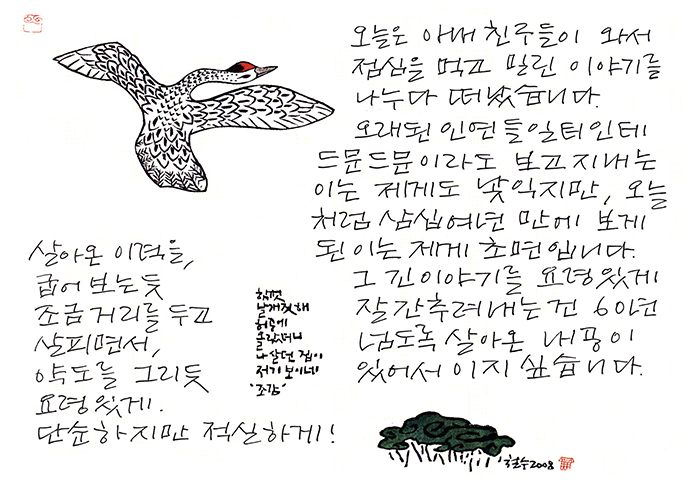 오늘은 아내 친구들이 와서
점심을 먹고 밀린 이야기를
나누다 떠났습니다.
오래된 인연들일터인데
드문드문이라도 보고 지내는
이는 제게도 낯익지만, 오늘
처럼 삼십여년 만에 보게
된 이는 제게 초면입니다.
그 긴 이야기를 요령있게
잘 간추려내는 건 60년
넘도록 살아온 내공이
있어서 이지 싶습니다.
살아온 이력을,
굽어 보는 듯
조금 거리를 두고
살피면서,
약도를 그리듯
요령있게.
단순하지만 적실하게!
힘껏
날개짓해
허공에
올랐더니
나 살던 집이
저기 보이네
"조감"
철수 2008